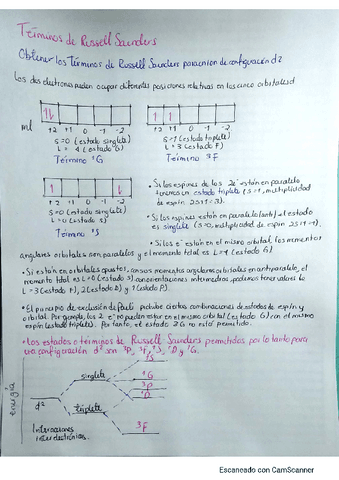 Términos de Russell Saunders
Obtener los términos de Russell Saunders para un ion de configuración d²
Los dos electrones pueden ocupar diferentes posiciones relativas en los cinco orbitales d
ml +2 +1 0 -1 -2 +2 +1 0 -1 -2
S=0 (estado singlete) S=1 (estado triplete)
L = 4 (estado G) L = 3 (estado F)
Término ¹G Término ³F
+2 +1 0 -1 -2
S=0 (estado singlete)
L=0 (estado S)
Término ¹S
• Si los espines de los 2e⁻ están en paralelo
tenemos un estado triplete (S=1, multiplicidad
de espín 2S+1=3).
• Si los espines están en paralelo (anti) el estado
es singlete (S=0, multiplicidad de espín 2S+1=1).
• Si los e⁻ están en el mismo orbital, los momentos
angulares orbitales son paralelos y el momento total es L=4 (estado G)
• Si están en orbitales opuestos, con sus momentos angulares orbitales en antiparalelo, el
momento total es L=0 (estado S) con orientaciones intermedias, podemos tener valores de
L=3 (estado F), 2 (estado D) y 1 (estado P).
• El principio de exclusión de Pauli prohibe ciertas combinaciones de estados de espín y
orbital. Por ejemplo, los 2 e⁻ no pueden estar en el mismo orbital (estado G) con el mismo
espín (estado triplete). Por tanto, el estado ³G no está permitido.
• Los estados o términos de Russell Saunders permitidos por lo tanto para
una configuración d² son ³P, ³F, ¹S, ¹D, y ¹G.
energía
¹S
singlete ¹G
³P
¹D
d²
triplete
³F
Interacciones
interelectrónicas.
Escaneado con CamScanner